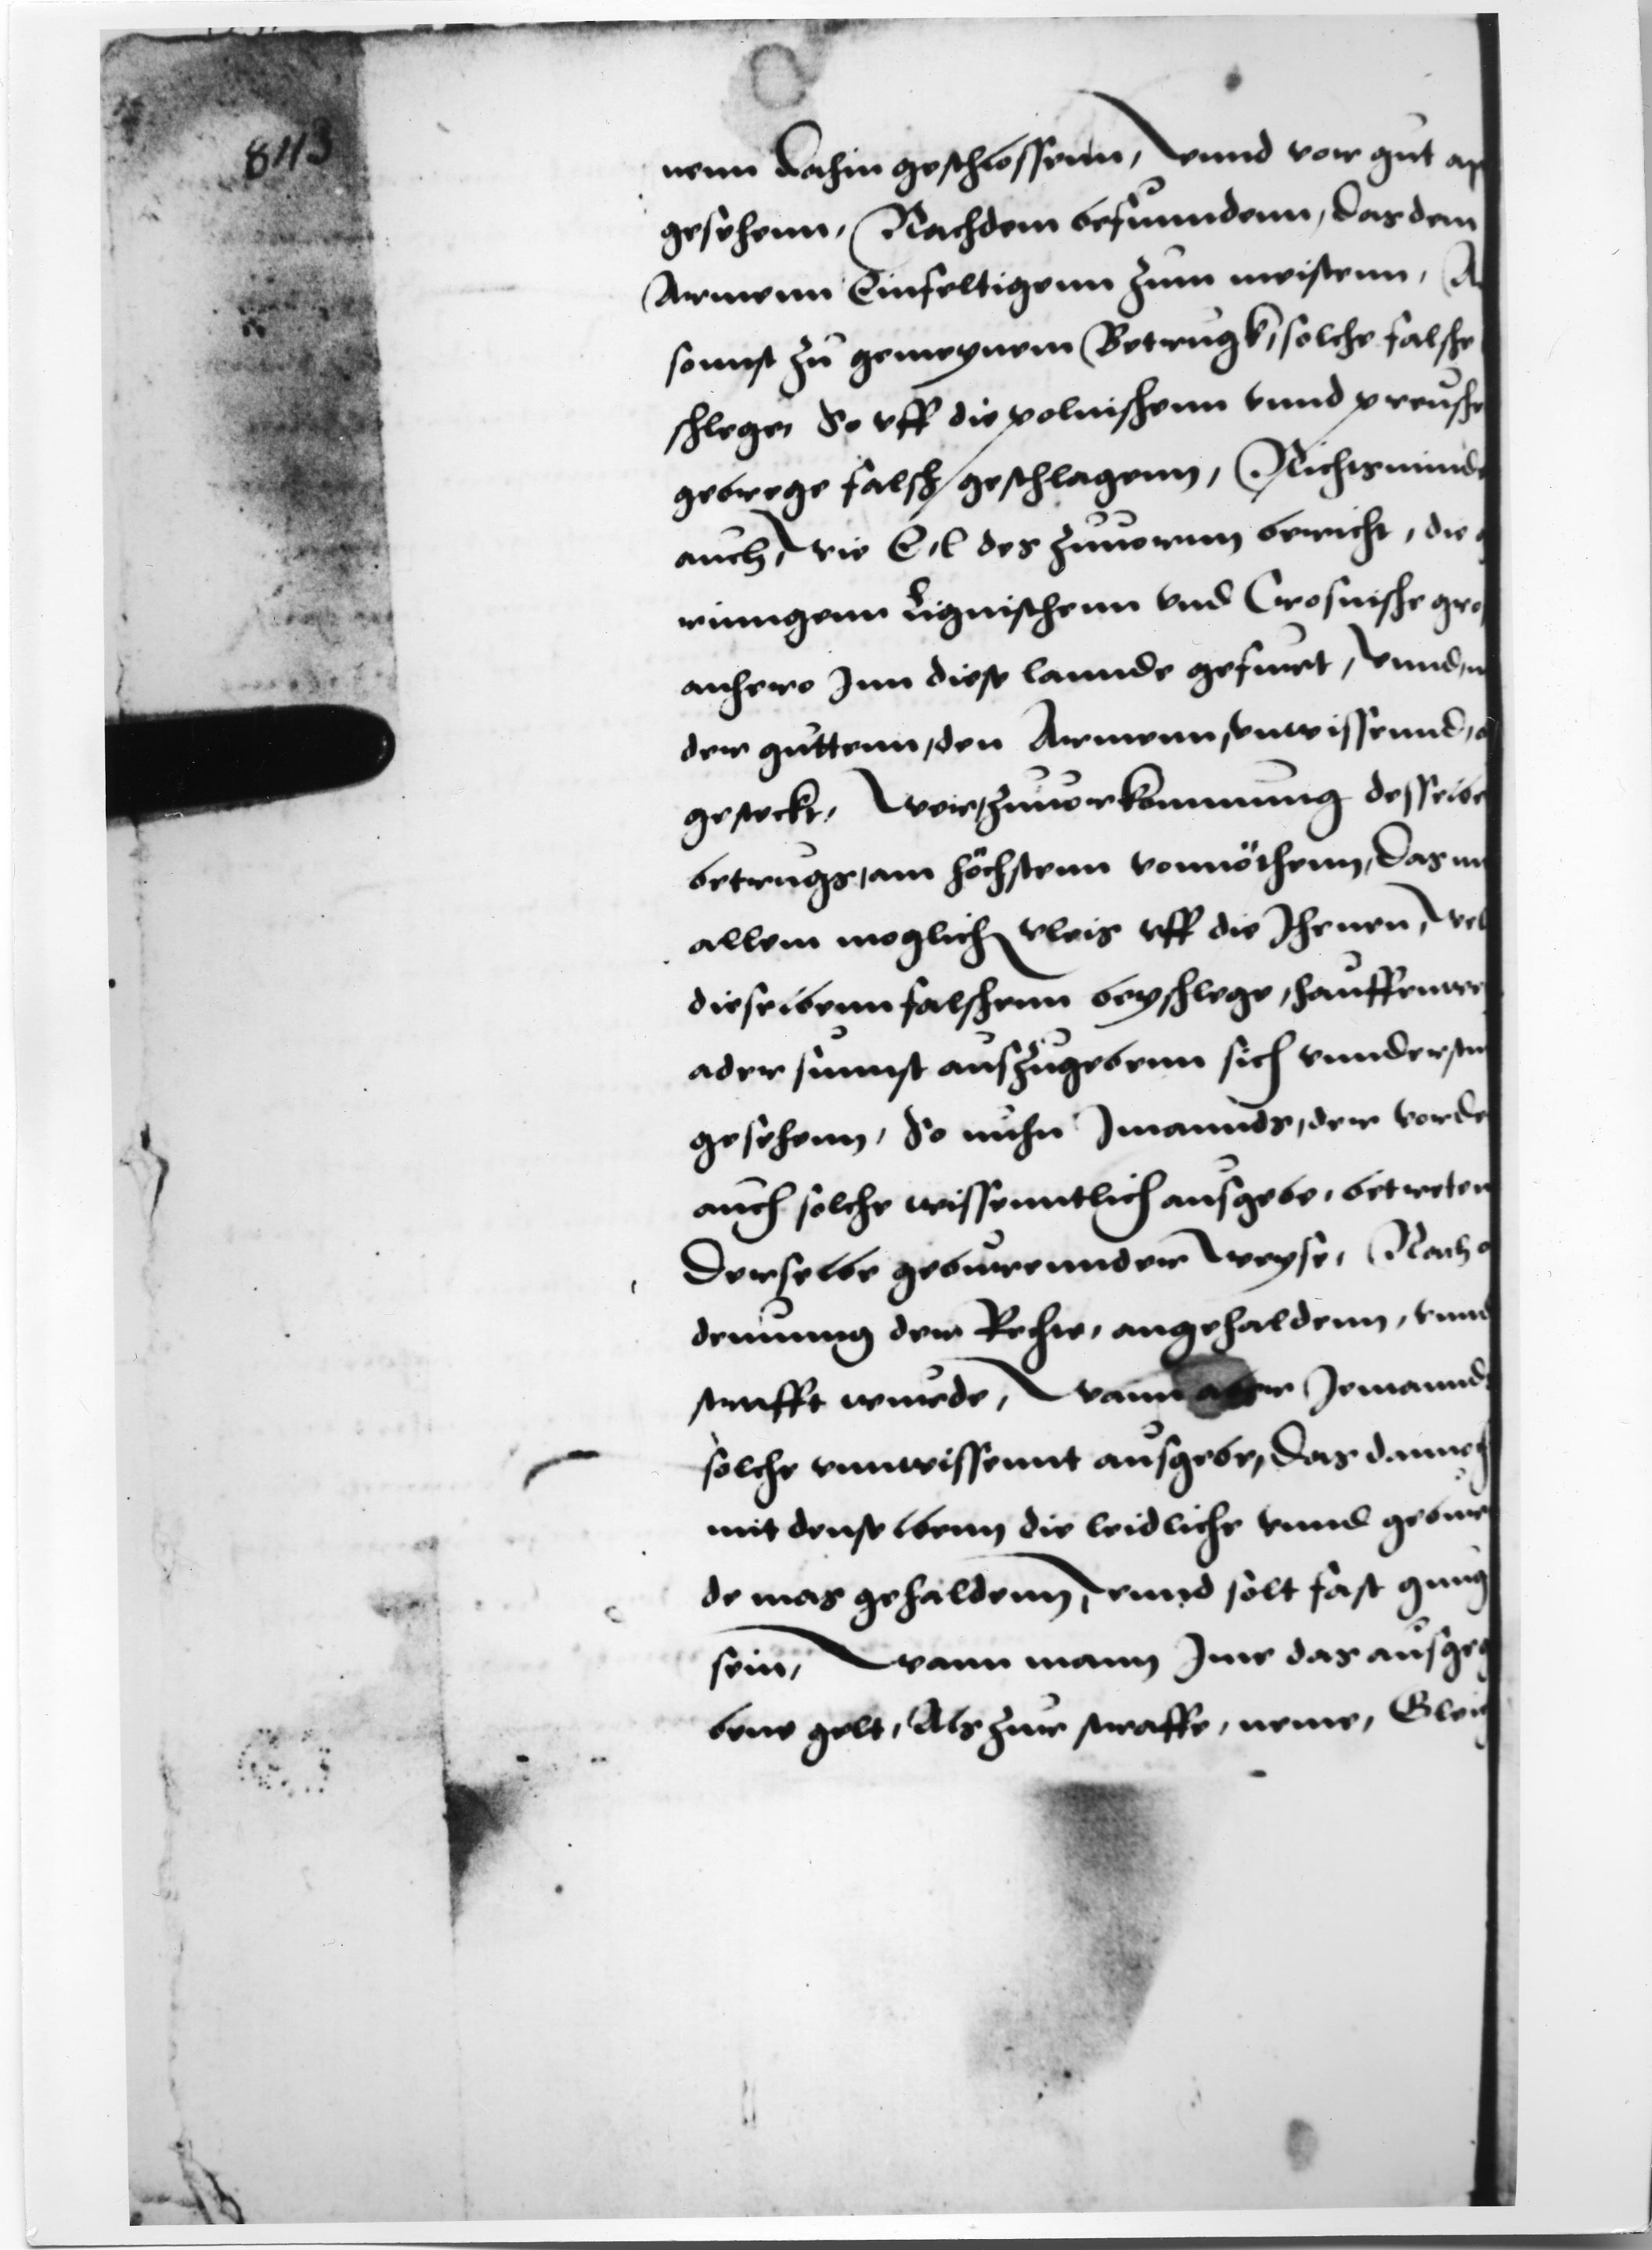 843
nenn dahin geschlossenn, vnnd vor gut an
gesehenn, Nachdem befunndenn, das dem
Armenn Einfeltigenn zum meistenn, A
sonnst zu gemeynem Betrugk, solche falsche
schlege, So vff die polnischenn vnnd preusche
gebrege falsch geschlagenn, Nichtsminde
auch, wie E, l des zuuornn bericht, die g
ringenn Lignischenn vnd Crosnische gro
anhero Inn diese lannde gefurt, vnnd, n
der guttenn, den Armenn, vnwissennd, 
gesteckt, Wer, zuuorkommung desselbe
betrugs, am höchstenn vonnöthenn, das m
allem moglich vleis vff die Jhenen, wel
dieselbenn falschenn beyschlege, hauffenwe
ader sunnst auszugebenn sich vnnderstu
gesehenn, So nuhn Imannds, der vorde
auch solche wissenntlich ausgebe, betreten
Derselbe geburennder weyse, Nach o
dennung der Rechte, angehaldenn, vnnd
strafft wurde, Wann aber Jemannds
solche vnnwissennt ausgebe, das dannoch
mit denselbenn die leidliche vnnd gebure
de mas gehaldenn, vnnd solt fast gnug
sein, Wann mann Ime das ausgeg
bene gelt, Als zur straffe, neme, Gleich